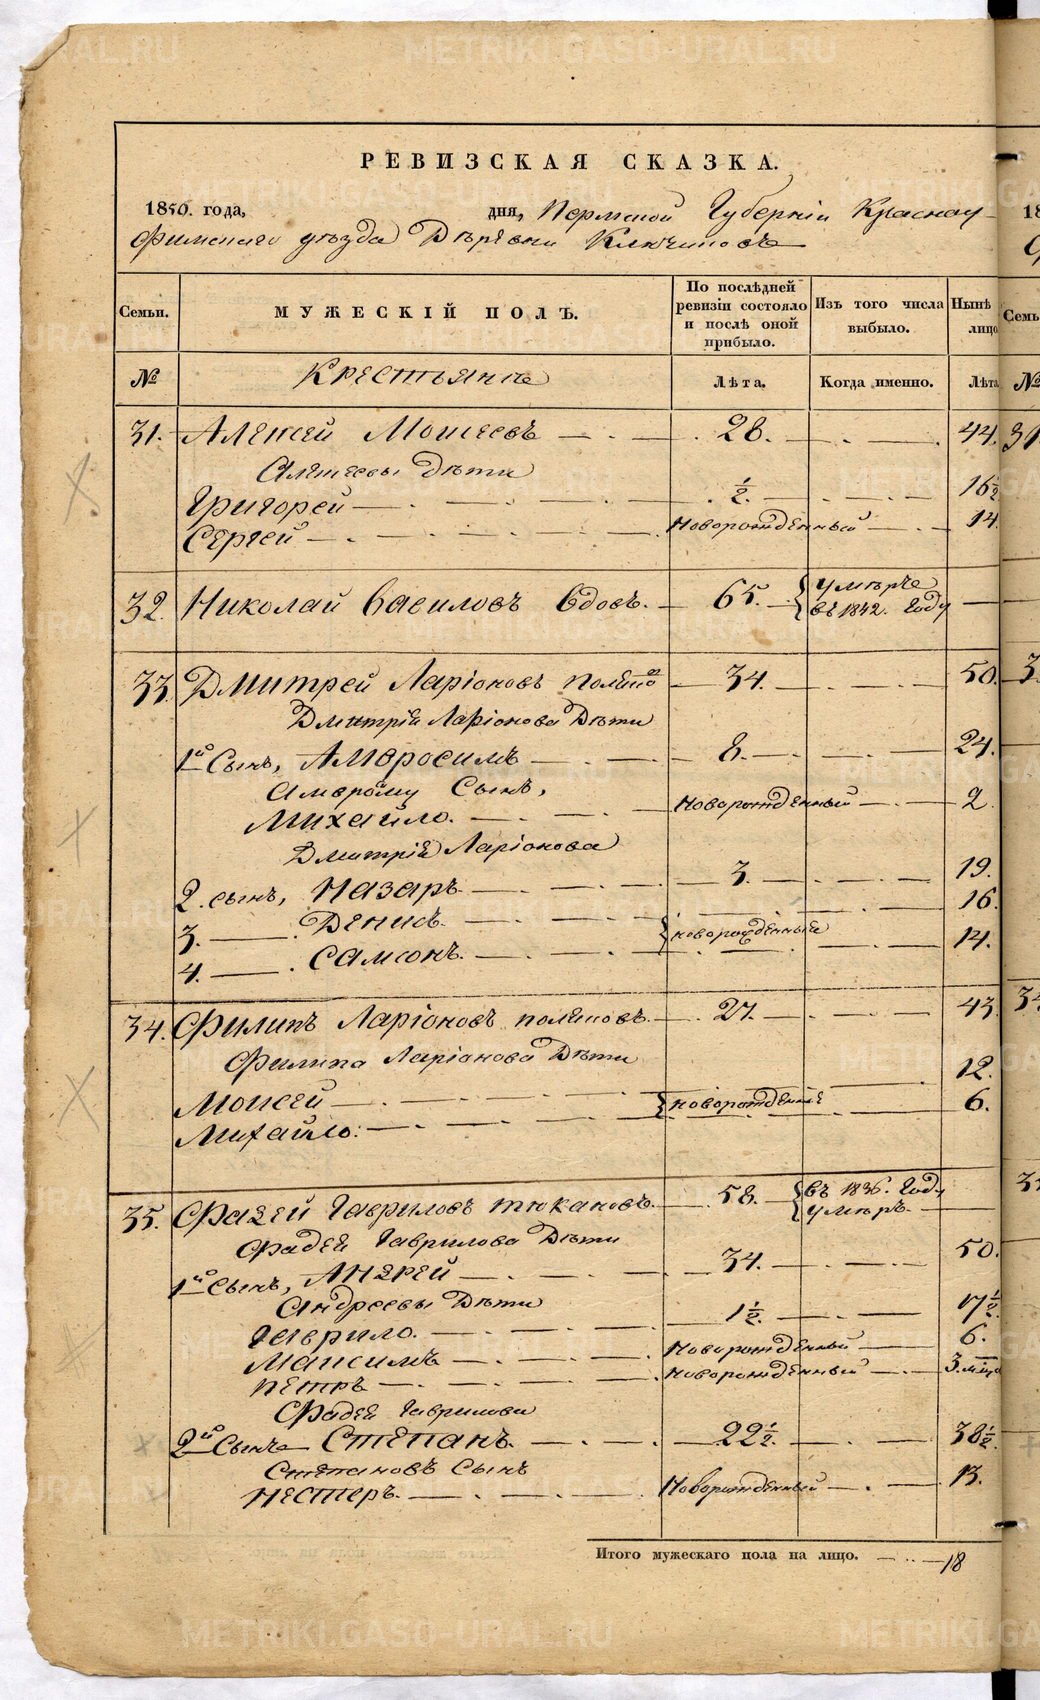 РЕВИЗСКАЯ СКАЗКА.
1850. года, дня, Пермской Губерніи Красноу-
фимскаго уѣзда Дѣревни Ключиковѣ
Семьи. МУЖЕСКІЙ ПОЛЪ. По послѣдней ревизіи состояло и послѣ оной прибыло. Изъ того числа выбыло. Нынѣ лицо
№ Крестьяне Лѣта. Когда именно. Лѣта
31. Алексей Моисеевъ 28. 44.
Алексеевы Дѣти
Григорей ½. 16½
Сергей Новорожденный 14.
32. Николай Василовъ Вдовъ. 65. Умѣрѣ въ 1842. Году
33. Дмитрей Ларіоновъ 34. 50.
Дмитрій Ларіонова Дѣти
1й Сынъ, Амвросимъ 8. 24.
Сынъ,
Михайло. Новорожденный 2
Дмитрій Ларіонова
2. сынъ, Назаръ 3. 19.
3. Денисъ. новорожденные 16.
4. Самсонъ. 14.
34. Филипъ Ларіоновъ 27. 43.
Филипа Ларіонова Дѣти
Моисей новорожденные 12.
Михайло: 6.
35. Фадей Гавриловъ тюкановъ. 58. въ 1836. Году умѣръ.
Фадей Гаврилова Дѣти
1й Сынъ, Андрей 34. 50.
Андреевы Дѣти
Гаврило. 1½. 17½.
Максимъ Новорожденный 6.
Петръ новорожденный 3. мѣца
Фадей Гаврилова
2й Сынъ Степанъ. 22½. 38½.
Степановъ Сынъ
Нестеръ. Новорожденный 13.
Итого мужескаго пола на лицо. 18
METRIKI.GASO-URAL.RU